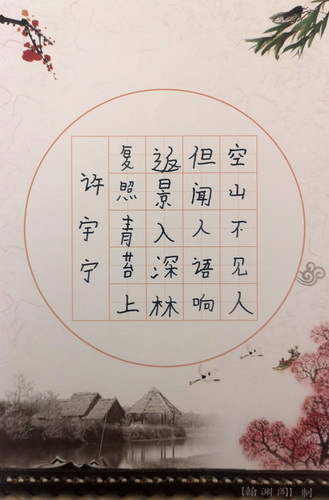 空山不见人
但闻人语响
返景入深林
复照青苔上
许宇宁
【翰渊阁】制